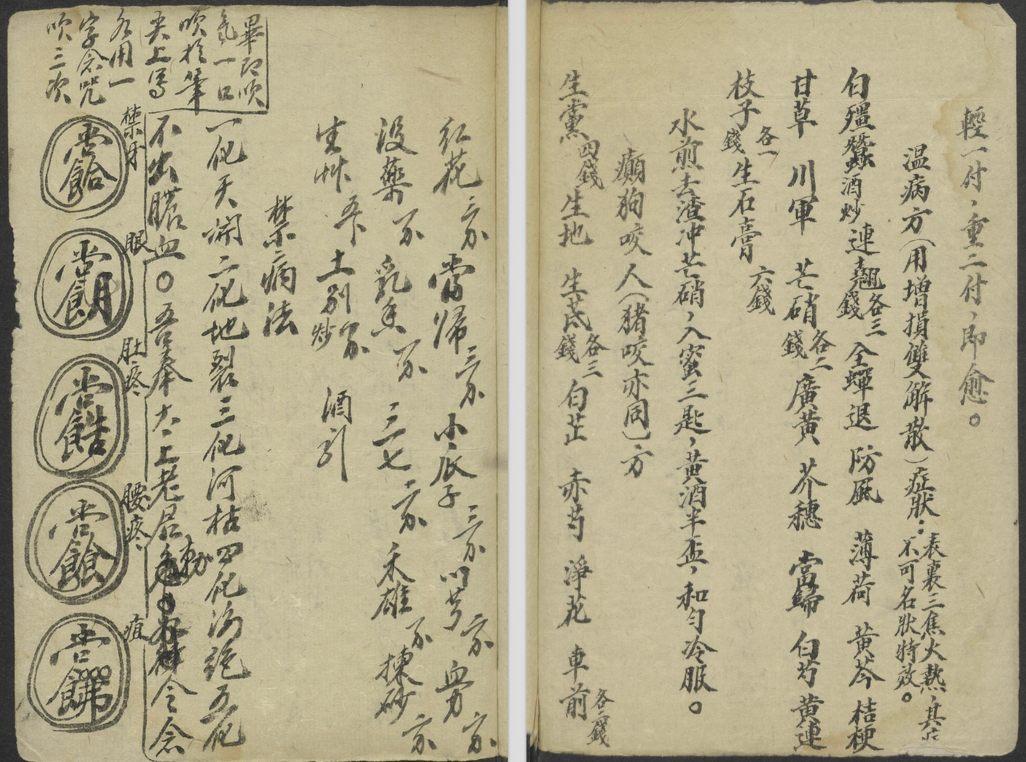 輕一付，重二付，即愈。
温病方（用增損雙解散）症狀：表裏三焦火熱，其症不可名狀特效。
白殭蠶酒炒 連翹各三錢 全蟬退 防風 薄荷 黃芩 桔梗
甘草 川軍 芒硝各二錢 廣黃 芥穗 當歸 白芍 黃連
枝子各一錢 生石膏六錢
水煎去渣冲芒硝，入蜜三匙，黃酒半盃，和匀冷服。
癲狗咬人（豬咬亦同）方
生黨四錢 生地 生芪各三錢 白芷 赤芍 淨花 車前各二錢
紅花 當歸 小瓜子 川芎
沒藥 乳香 三七 禾雄 揀砂
生艸 土別 炒 酒引
禁病法
一化天開二化地裂三化河枯四化海絕五化
不出膿血〇吾奉太上老君勅令念
畢即吹
氣一口
吹於筆
尖上寫
各用一
字念咒
吹三次
禁牙
眼
肚疼
腰疼
疽